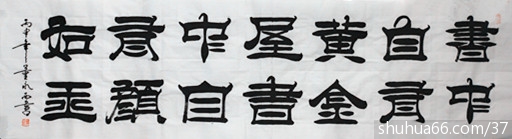 書中
自有
黄金
屋書
中自
有顔
如玉
丙申年
shuhua66.com/37